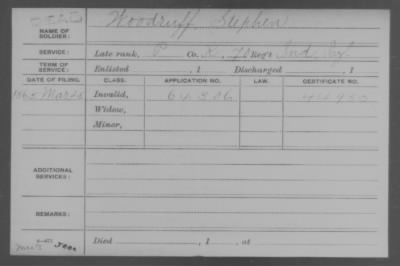 DEAD
NAME OF SOLDIER: Woodruff, Stephen
SERVICE: Late rank, P Co. K, 70 Reg't Ind. Inf.
TERM OF SERVICE: Enlisted , 1 Discharged , 1
DATE OF FILING. CLASS. APPLICATION NO. LAW. CERTIFICATE NO.
1865 Mar Invalid, 64306
Widow,
Minor,
ADDITIONAL SERVICES:
REMARKS:
Died , 1 , at